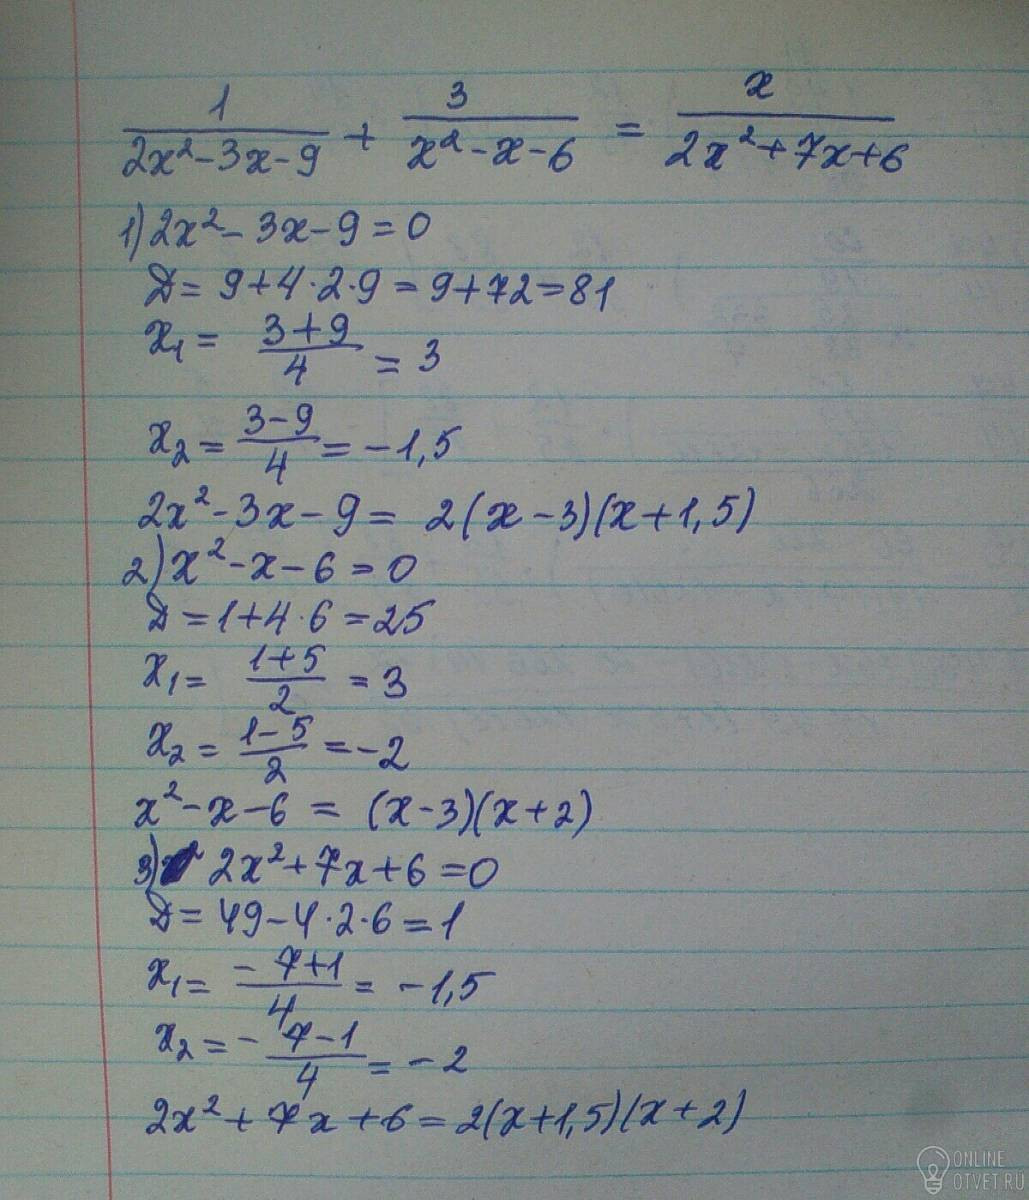 1/(2x²-3x-9) + 3/(x²-x-6) = x/(2x²+7x+6)
1) 2x²-3x-9=0
D=9+4·2·9=9+72=81
x₁= (3+9)/4 = 3
x₂= (3-9)/4 = -1,5
2x²-3x-9= 2(x-3)(x+1,5)
2) x²-x-6=0
D=1+4·6=25
x₁= (1+5)/2 = 3
x₂= (1-5)/2 = -2
x²-x-6 = (x-3)(x+2)
3) 2x²+7x+6=0
D=49-4·2·6=1
x₁= (-7+1)/4 = -1,5
x₂= -(7-1)/4 = -2
2x²+7x+6=2(x+1,5)(x+2)
ONLINE
OTVET.RU